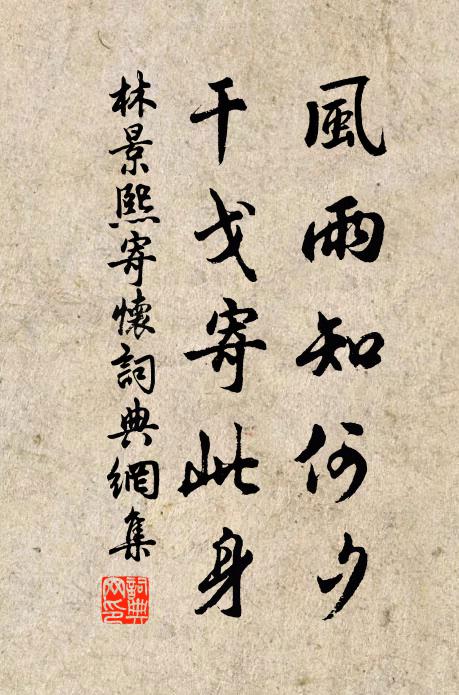 風雨知何夕
干戈寄此身
林景熙寄懷詞典網集